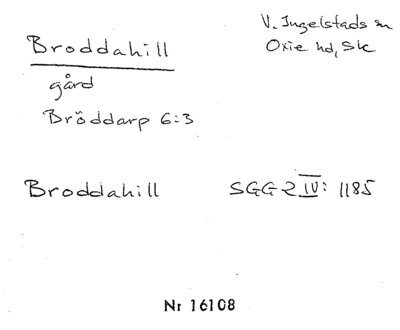 Broddahill
V. Ingelstads sn
Oxie hd, Sk
gård
Bröddarp 6:3
Broddahill
SGG 2 IV: 1185
Nr 16108